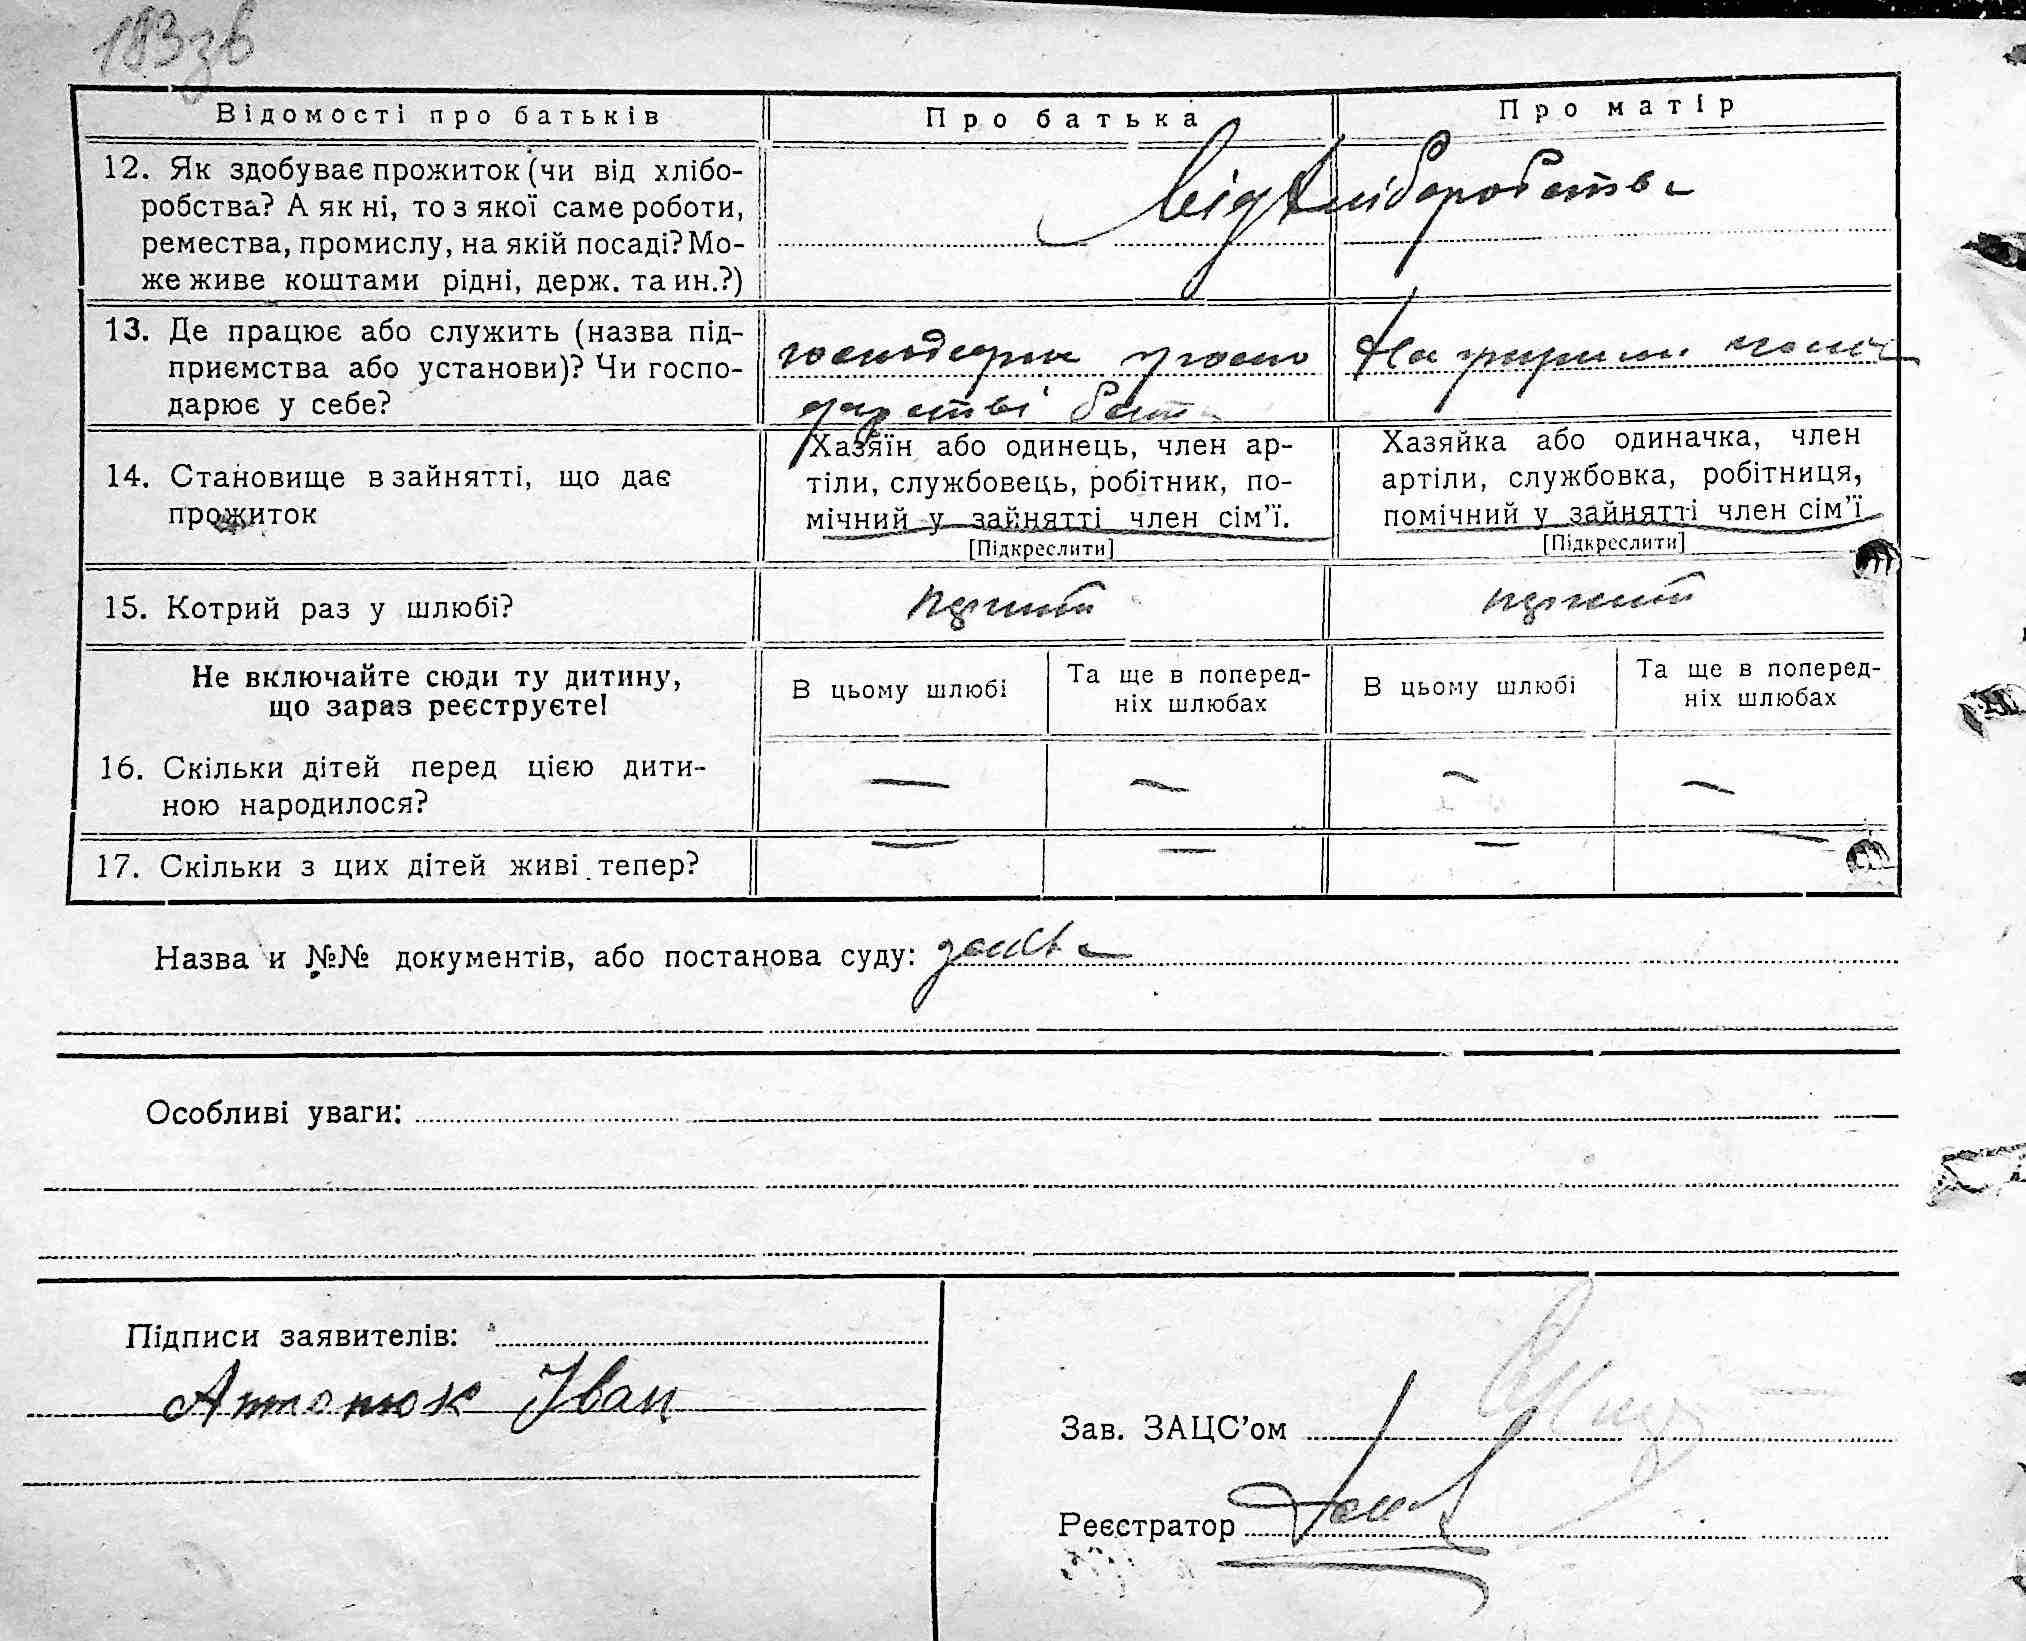 183зв
Відомості про батьків
Про батька
Про матір
12. Як здобуває прожиток (чи від хлібо-
робства? А як ні, то з якої саме роботи,
ремества, промислу, на якій посаді? Мо-
же живе коштами рідні, держ. та ин.?)
від хліборобства
13. Де працює або служить (назва під-
приємства або установи)? Чи госпо-
дарює у себе?
14. Становище в зайнятті, що дає
прожиток
Хазяїн або одинець, член ар-
тіли, службовець, робітник, по-
мічний у зайнятті член сім'ї.
[Підкреслити]
Хазяйка або одиначка, член
артіли, службовка, робітниця,
помічний у зайнятті член сім'ї
[Підкреслити]
15. Котрий раз у шлюбі?
Не включайте сюди ту дитину,
що зараз реєструєте!
В цьому шлюбі
Та ще в поперед-
ніх шлюбах
В цьому шлюбі
Та ще в поперед-
ніх шлюбах
16. Скільки дітей перед цією дити-
ною народилося?
— — — —
17. Скільки з цих дітей живі тепер?
— — — —
Назва и №№ документів, або постанова суду:
Особливі уваги:
Підписи заявителів:
Антонюк Іван
Зав. ЗАЦС'ом
Реєстратор